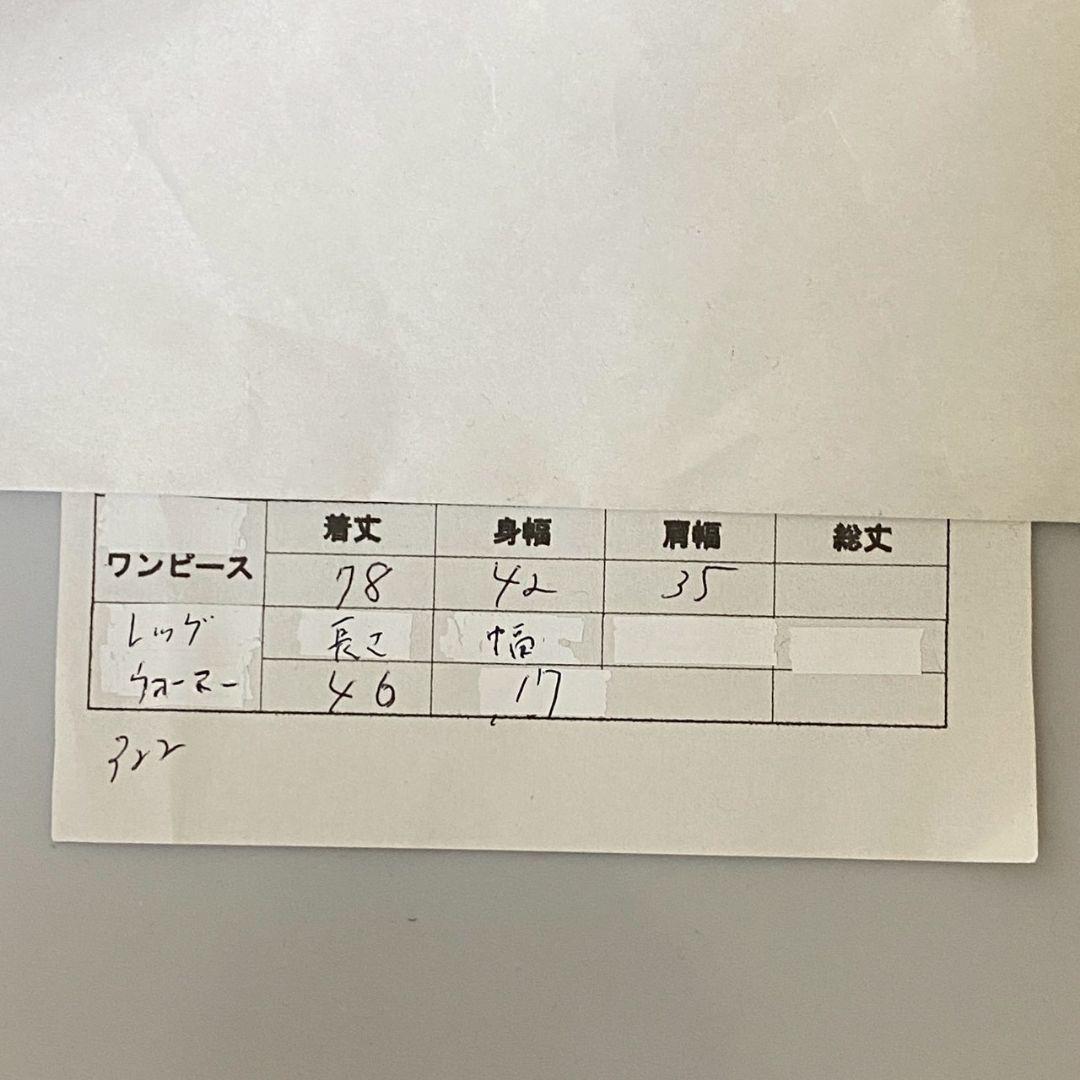 着丈 身幅 肩幅 総丈
ワンピース 78 42 35
レッグ 長さ 幅
ウォーマー 46 17
322